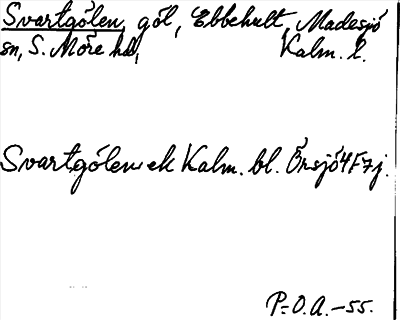 Svartgölen, göl, Ebbehult, Madesjö
sn, S. Möre hd, Kalm. l.
Svartgölen ek Kalm. bl. Örsjö 4F7j.
P.O.A. -55.